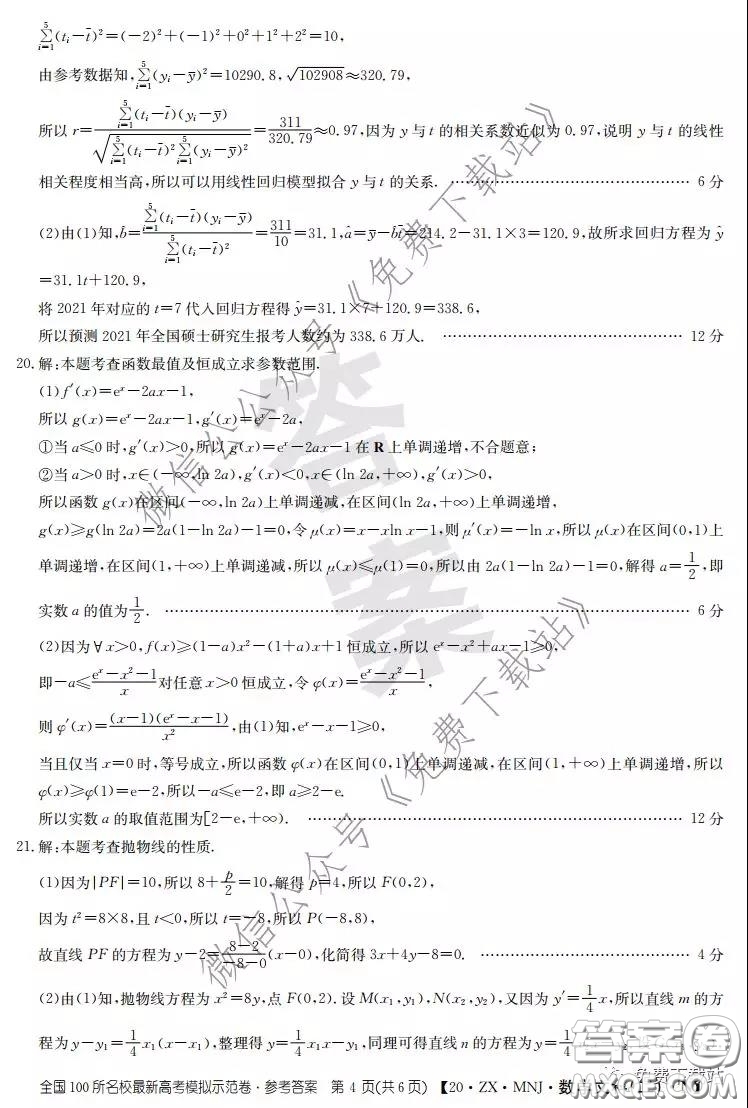 ∑(i=1→5)(tᵢ−t̄)²=(−2)²+(−1)²+0²+1²+2²=10,
由参考数据知,∑(i=1→5)(yᵢ−ȳ)²=10290.8,√102908≈320.79,
所以 r=∑(i=1→5)(tᵢ−t̄)(yᵢ−ȳ)/√(∑(i=1→5)(tᵢ−t̄)²∑(i=1→5)(yᵢ−ȳ)²)=311/320.79≈0.97,因为 y 与 t 的相关系数近似为 0.97,说明 y 与 t 的线性
相关程度相当高,所以可以用线性回归模型拟合 y 与 t 的关系. …………………………………… 6 分
(2)由(1)知,b̂=∑(i=1→5)(tᵢ−t̄)(yᵢ−ȳ)/∑(i=1→5)(tᵢ−t̄)²=311/10=31.1,â=ȳ−b̂t̄=214.2−31.1×3=120.9,故所求回归方程为 ŷ
=31.1t+120.9,
将 2021 年对应的 t=7 代入回归方程得 ŷ=31.1×7+120.9=338.6,
所以预测 2021 年全国硕士研究生报考人数约为 338.6 万人. …………………………………… 12 分
20.解:本题考查函数最值及恒成立求参数范围.
(1)f′(x)=eˣ−2ax−1,
所以 g(x)=eˣ−2ax−1,g′(x)=eˣ−2a,
①当 a≤0 时,g′(x)>0,所以 g(x)=eˣ−2ax−1 在 R 上单调递增,不合题意;
②当 a>0 时,x∈(−∞,ln 2a),g′(x)<0,x∈(ln 2a,+∞),g′(x)>0,
所以函数 g(x)在区间(−∞,ln 2a)上单调递减,在区间(ln 2a,+∞)上单调递增,
g(x)≥g(ln 2a)=2a(1−ln 2a)−1=0,令 μ(x)=x−xln x−1,则 μ′(x)=−ln x,所以 μ(x)在区间(0,1)上
单调递增,在区间(1,+∞)上单调递减,所以 μ(x)≤μ(1)=0,所以由 2a(1−ln 2a)−1=0,解得 a=1/2,即
实数 a 的值为1/2. …………………………………… 6 分
(2)因为∀x>0,f(x)≥(1−a)x²−(1+a)x+1 恒成立,所以 eˣ−x²+ax−1≥0,
即−a≤(eˣ−x²−1)/x 对任意 x>0 恒成立,令 φ(x)=(eˣ−x²−1)/x,
则 φ′(x)=(x−1)(eˣ−x−1)/x²,由(1)知,eˣ−x−1≥0,
当且仅当 x=0 时,等号成立,所以函数 φ(x)在区间(0,1)上单调递减,在区间(1,+∞)上单调递增,所以
φ(x)≥φ(1)=e−2,所以−a≤e−2,即 a≥2−e.
所以实数 a 的取值范围为[2−e,+∞). …………………………………… 12 分
21.解:本题考查抛物线的性质.
(1)因为|PF|=10,所以 8+p/2=10,解得 p=4,所以 F(0,2),
因为 t²=8×8,且 t<0,所以 t=−8,所以 P(−8,8),
故直线 PF 的方程为 y−2=(8−2)/(−8−0)(x−0),化简得 3x+4y−8=0. …………………………………… 4 分
(2)由(1)知,抛物线方程为 x²=8y,点 F(0,2).设 M(x₁,y₁),N(x₂,y₂),又因为 y′=1/4x,所以直线 m 的方
程为 y−y₁=1/4x₁(x−x₁),整理得 y=1/4x₁x−y₁,同理可得直线 n 的方程为 y=
全国 100 所名校最新高考模拟示范卷·参考答案 第 4 页(共 6 页) 【20·ZX·MNJ·数
微信公众号《免费下载站》
微信公众号《免费下载站》
答案
答案圈
MXQE.COM
免费下载站